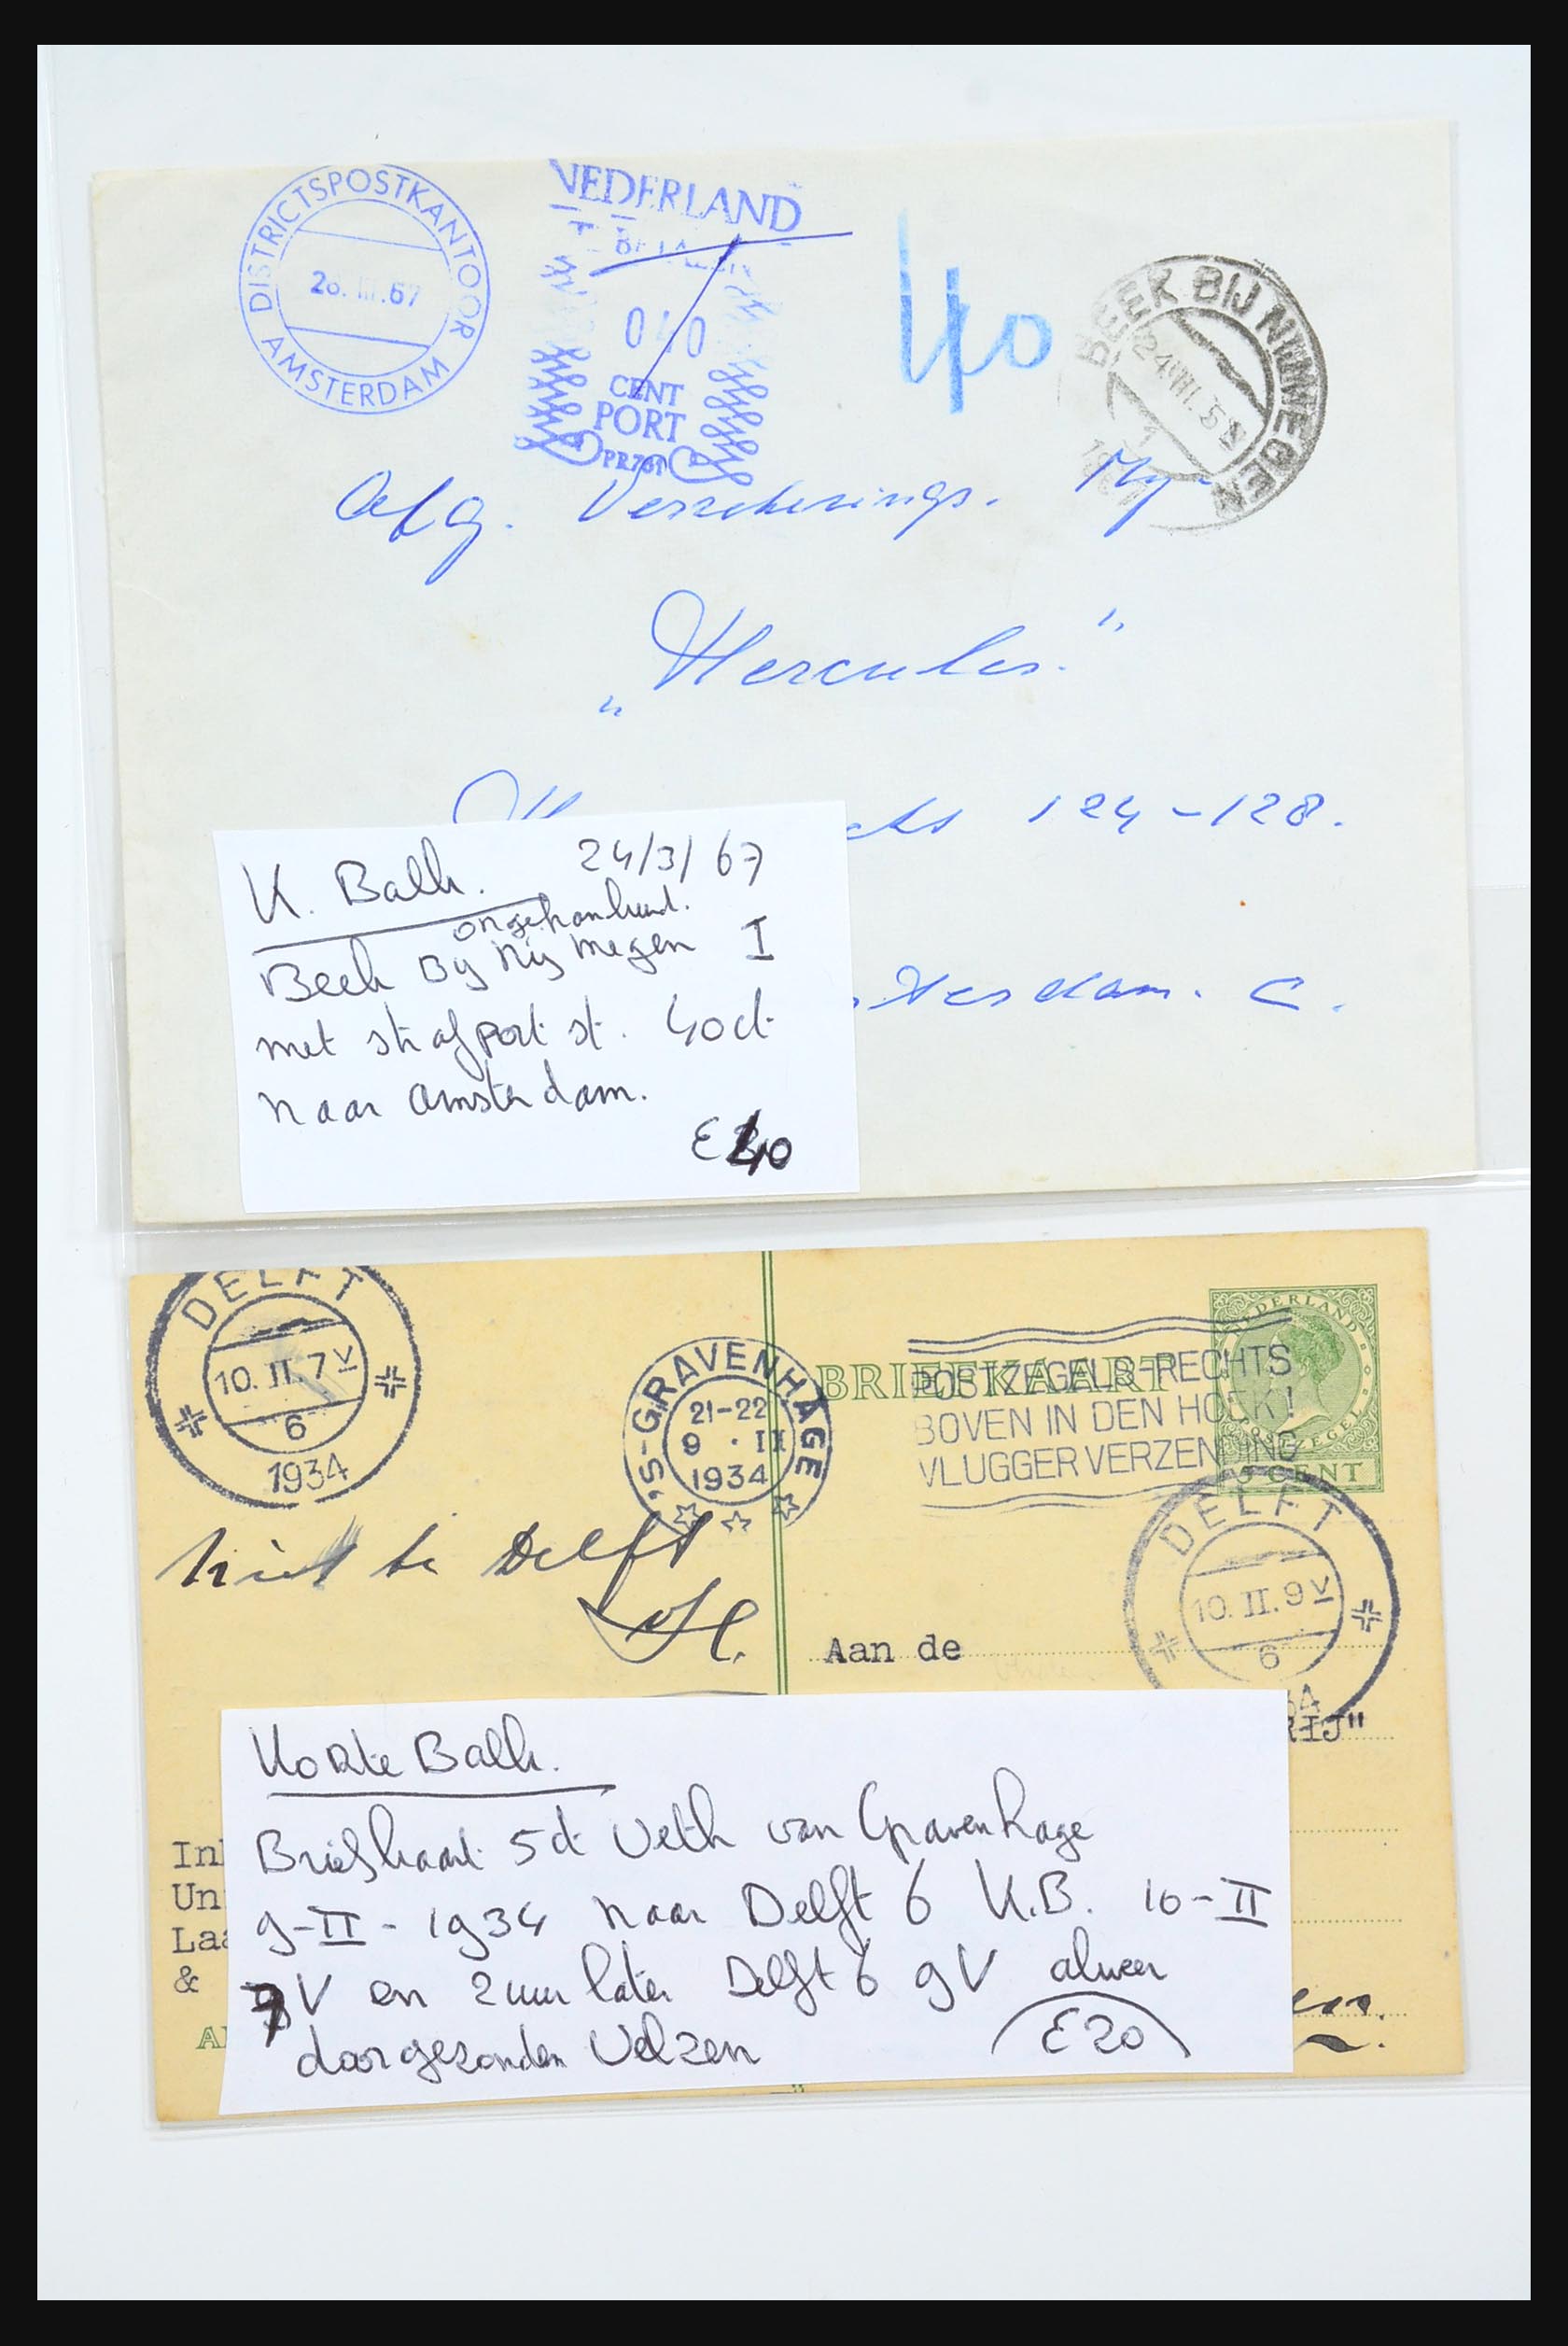 DISTRICTSPOSTKANTOOR
AMSTERDAM
NEDERLAND
CENT
PORT
PR761
40
BEEK BIJ NIJMEGEN
Afg. Verzekerings. My
„Hercules."
124-128.
C.
K. Balk. 24/3/67
Beek Bij Nijmegen I
met strafport st. 40ct
naar Amsterdam.
£ 40
DELFT
10.II.7V
6
1934
'S-GRAVENHAGE
21-22
9 · II
1934
BRIEFKAART
POSTZEGELS RECHTS
BOVEN IN DEN HOEK!
VLUGGER VERZENDING
NEDERLAND
POSTZEGEL
5 CENT
niet te Delft
DELFT
10.II.9V
6
Aan de
RIJ"
Korte Balk.
Briefkaart 5ct Veth van Gravenhage
9-II-1934 naar Delft 6 K.B. 10-II
7V en 2 uur later Delft 6 9V alweer
doorgezonden Velzen £20
In
Un
Laa
&
en.